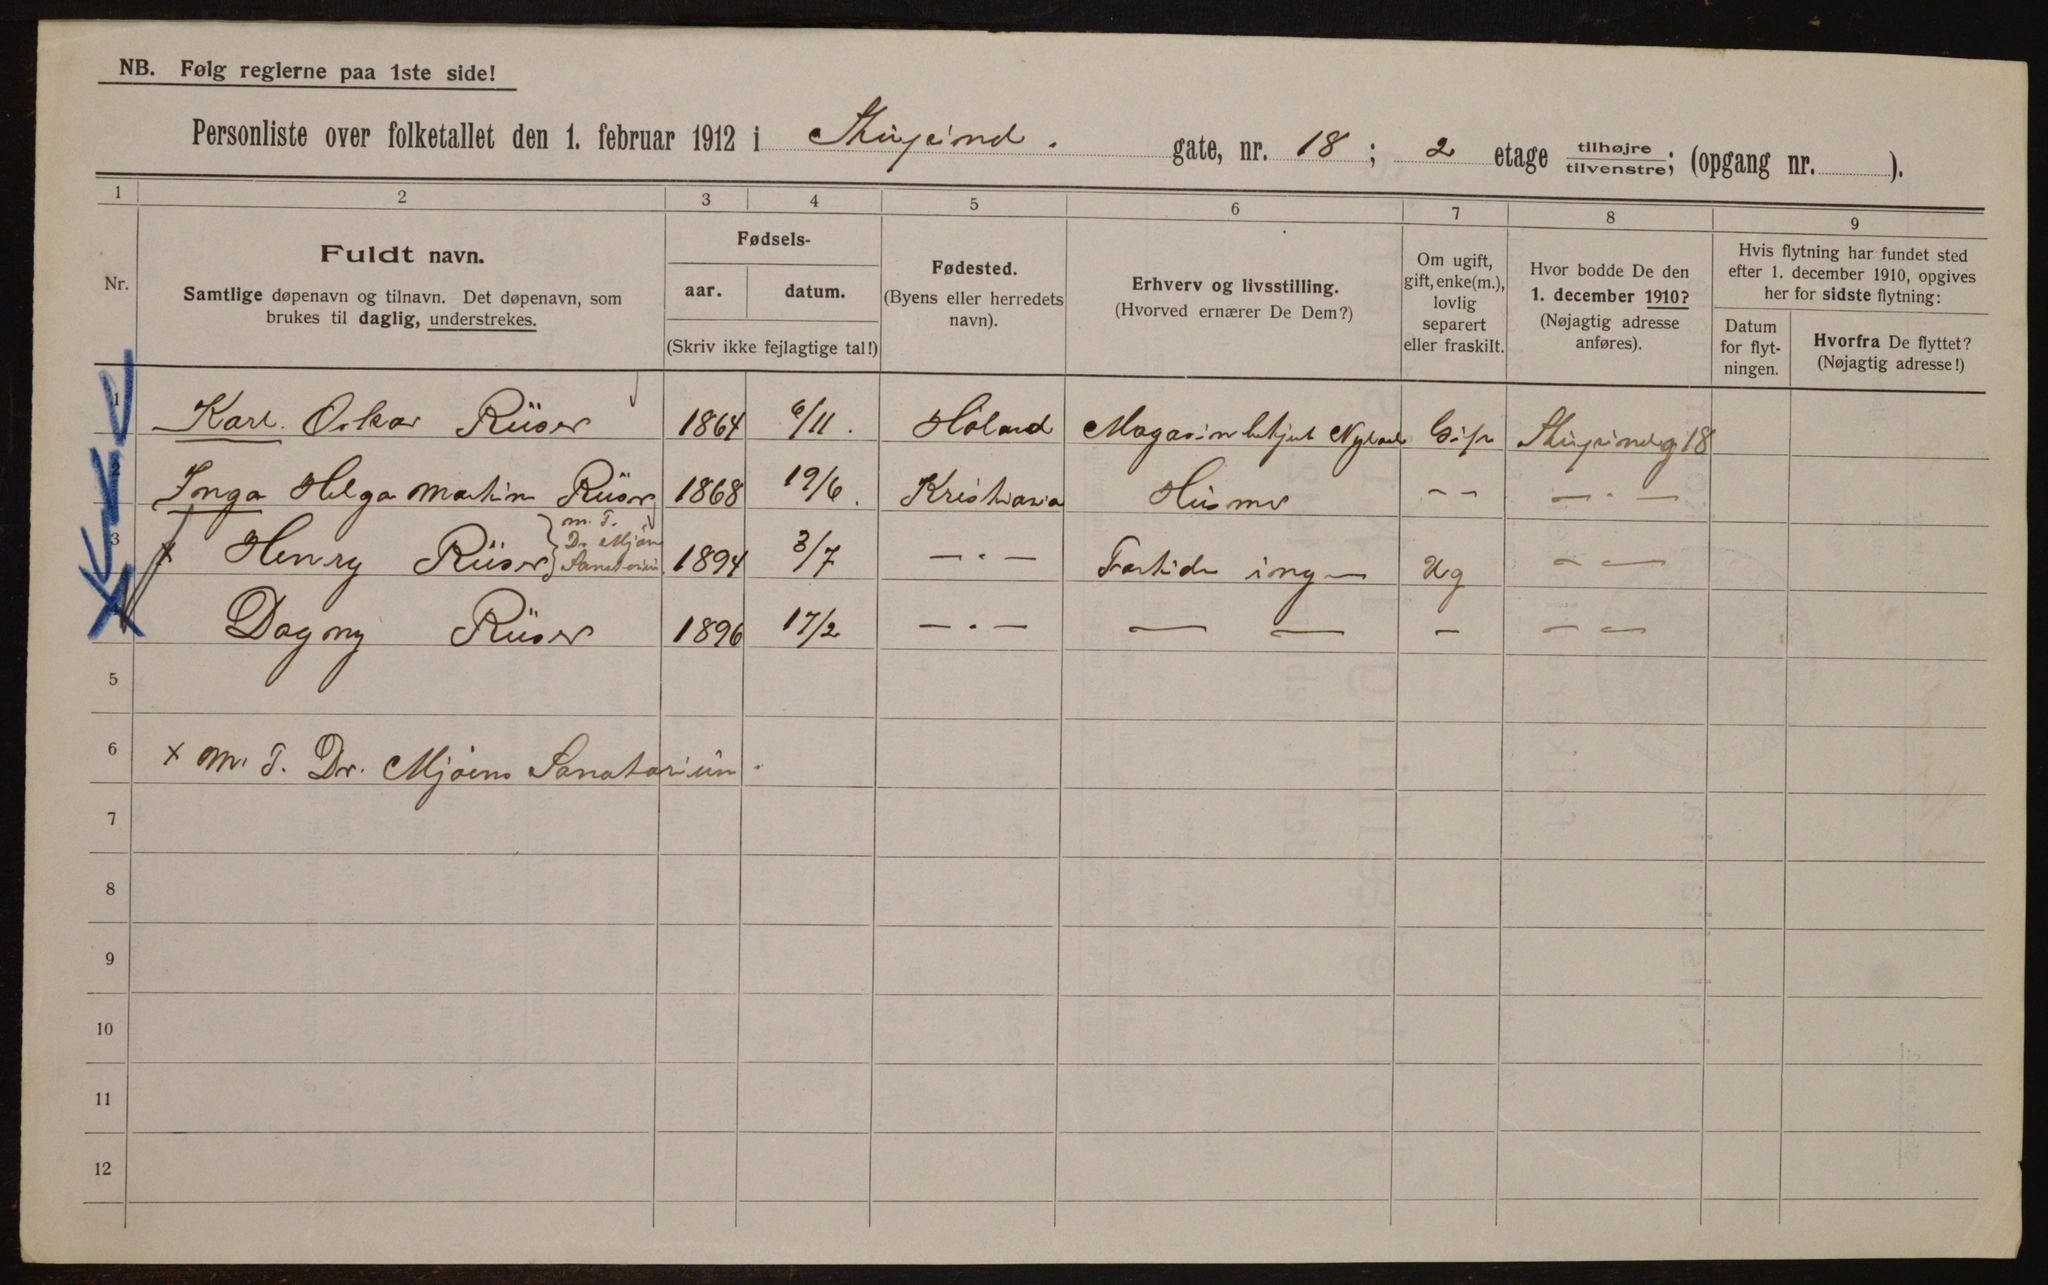 NB. Følg reglerne paa 1ste side!
Personliste over folketallet den 1. februar 1912 i gate, nr. 18; 2 etage tilhøjre / tilvenstre; (opgang nr. ).
1 2 3 4 5 6 7 8 9
Nr.
Fuldt navn.
Samtlige døpenavn og tilnavn. Det døpenavn, som
brukes til daglig, understrekes.
Fødsels-
aar. datum.
(Skriv ikke fejlagtige tal!)
Fødested.
(Byens eller herredets
navn).
Erhverv og livsstilling.
(Hvorved ernærer De Dem?)
Om ugift,
gift, enke(m.),
lovlig
separert
eller fraskilt.
Hvor bodde De den
1. december 1910?
(Nøjagtig adresse
anføres).
Hvis flytning har fundet sted
efter 1. december 1910, opgives
her for sidste flytning:
Datum
for flyt-
ningen.
Hvorfra De flyttet?
(Nøjagtig adresse!)
1 Karl Oskar Rüser 1864 6/11. Høland 18
2 Inga Helga Martin Rüser 1868 19/6. Kristiania — · —
3 x Henry Rüser 1894 3/7 — · — Ug — —
m. T.
Dr. Mjøen
Sanatorium
4 Dagny Rüser 1896 17/2 — · — — — — — —
5
6 x M. T. Dr. Mjøens Sanatorium.
7
8
9
10
11
12